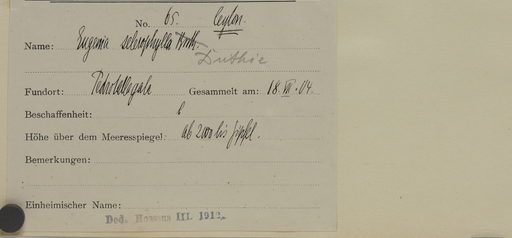 No. 65. Ceylon.
Name: Eugenia sclerophylla Thw.
Duthie
Fundort: Pedrotallagala Gesammelt am: 18.VII.04.
Beschaffenheit:
Höhe über dem Meeresspiegel: ab 2000 bis Gipfel.
Bemerkungen:
Einheimischer Name:
Ded. Hosseus III. 1912.